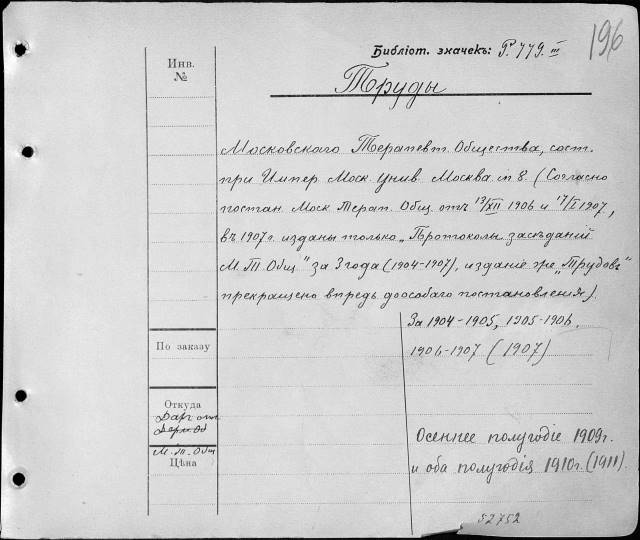 196
Библіот. значекъ: Р. 779. III
Труды
Инв.
№
Московскаго Терапевт. Общества, сост.
при Импер. Моск. Унив. Москва. in 8. (Согласно
постан. Моск. Терап. Общ. отъ 19/XII 1906 и 17/I 1907,
въ 1907 г. изданы только „Протоколы засѣданій
М. Т. Общ" за 3 года (1904-1907), изданіе же „Трудовъ"
прекращено впредь до особаго постановленія).
За 1904-1905, 1905-1906.
1906-1907 (1907)
По заказу
Откуда
Даръ отъ
М. Т. Общ
Цѣна
Осеннее полугодіе 1909 г.
и оба полугодія 1910 г. (1911).
52752